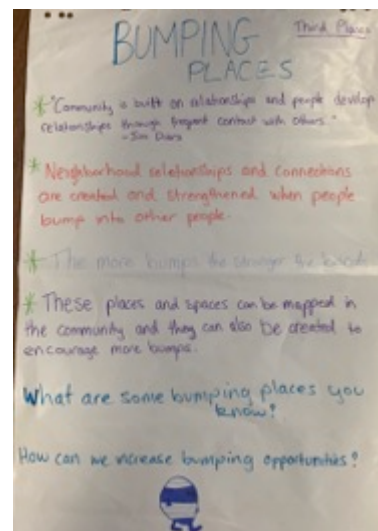 BUMPING
Third Places
PLACES
* "Community is built on relationships and people develop
relationships through frequent contact with others."
- Jim Diers
* Neighborhood relationships and connections
are created and strengthened when people
bump into other people.
* The more bumps the stronger the bonds
* These places and spaces can be mapped in
the community and they can also be created to
encourage more bumps.
What are some bumping places you
know?
How can we increase bumping opportunities?